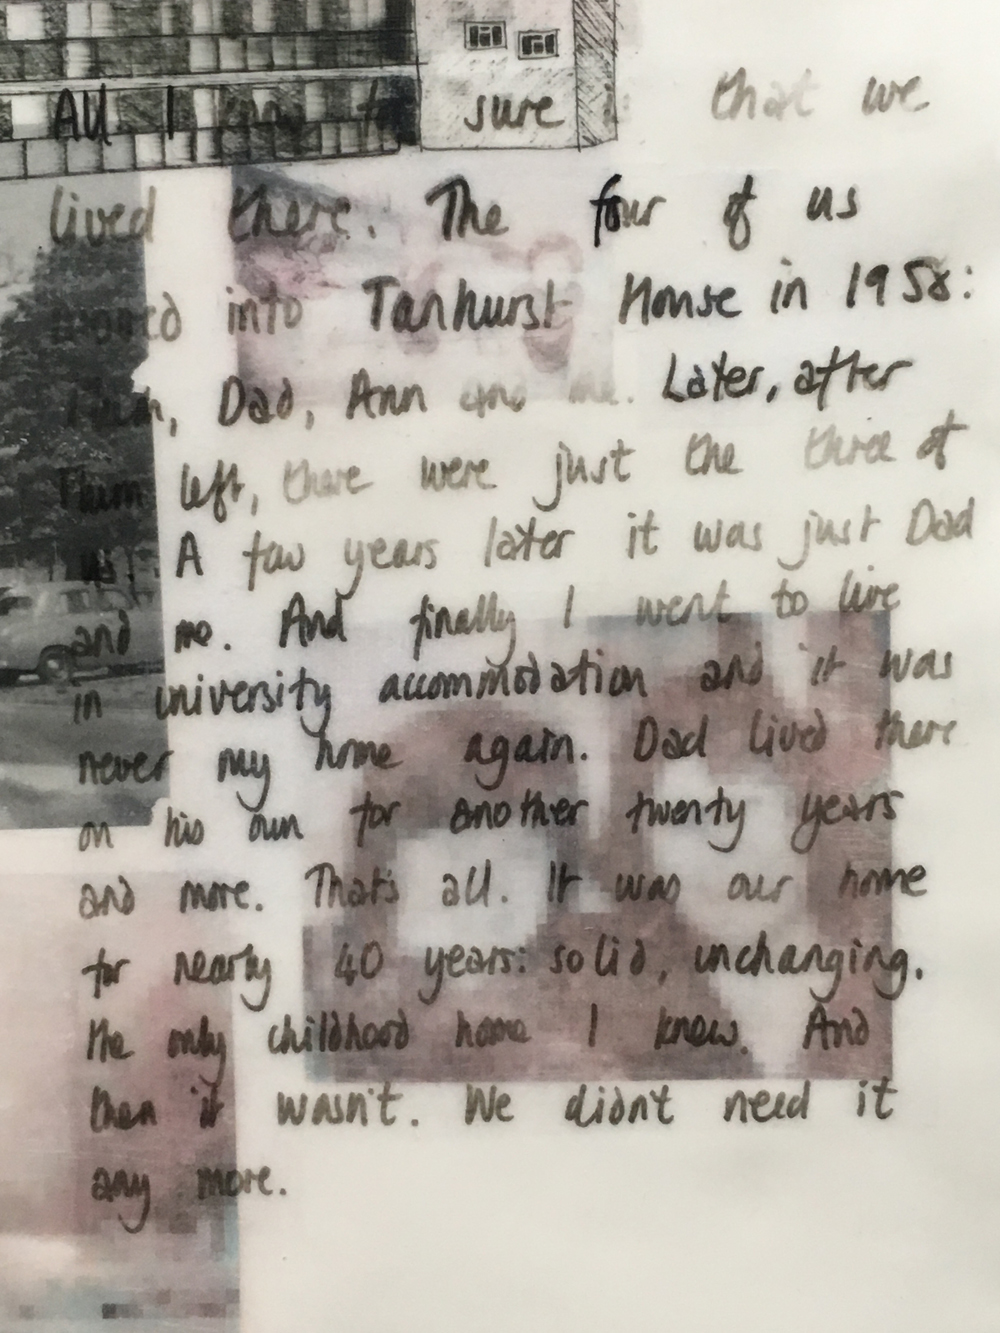 All I know for sure is that we
lived there. The four of us
moved into Tanhurst House in 1958:
Mum, Dad, Ann and me. Later, after
Mum left, there were just the three of
us. A few years later it was just Dad
and me. And finally I went to live
in university accommodation and it was
never my home again. Dad lived there
on his own for another twenty years
and more. That's all. It was our home
for nearly 40 years: solid, unchanging.
the only childhood home I knew. And
then it wasn't. We didn't need it
any more.